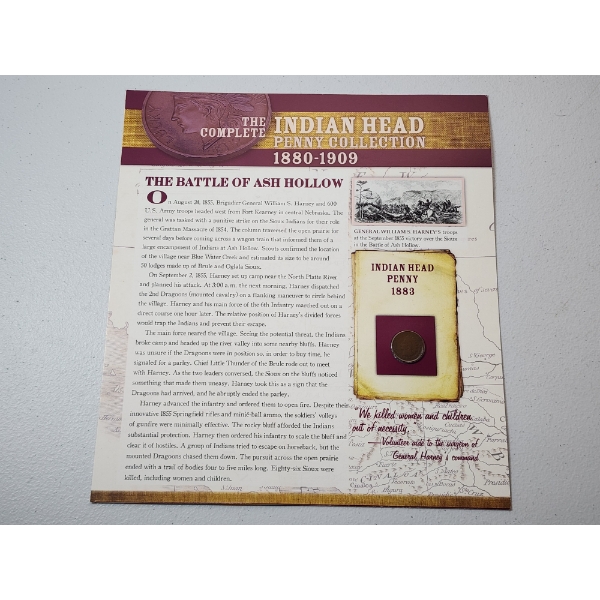 THE
COMPLETE
INDIAN HEAD
PENNY COLLECTION
1880-1909
THE BATTLE OF ASH HOLLOW
On August 24, 1855, Brigadier General William S. Harney and 600
U.S. Army troops headed west from Fort Kearney in central Nebraska. The
general was tasked with a punitive strike on the Sioux Indians for their role
in the Grattan Massacre of 1854. The column traversed the open prairie for
several days before coming across a wagon train that informed them of a
large encampment of Indians at Ash Hollow. Scouts confirmed the location
of the village near Blue Water Creek and estimated its size to be around
50 lodges made up of Brule and Oglala Sioux.
On September 2, 1855, Harney set up camp near the North Platte River
and planned his attack. At 3:00 a.m. the next morning, Harney dispatched
the 2nd Dragoons (mounted cavalry) on a flanking maneuver to circle behind
the village. Harney and his main force of the 6th Infantry marched out on a
direct course one hour later. The relative position of Harney's divided forces
would trap the Indians and prevent their escape.
The main force neared the village. Seeing the potential threat, the Indians
broke camp and headed up the river valley into some nearby bluffs. Harney
was unsure if the Dragoons were in position so, in order to buy time, he
signaled for a parley. Chief Little Thunder of the Brule rode out to meet
with Harney. As the two leaders conversed, the Sioux on the bluffs noticed
something that made them uneasy. Harney took this as a sign that the
Dragoons had arrived, and he abruptly ended the parley.
Harney advanced the infantry and ordered them to open fire. Despite their
innovative 1855 Springfield rifles and minié-ball ammo, the soldiers' volleys
of gunfire were minimally effective. The rocky bluff afforded the Indians
substantial protection. Harney then ordered his infantry to scale the bluff and
clear it of hostiles. A group of Indians tried to escape on horseback, but the
mounted Dragoons chased them down. The pursuit across the open prairie
ended with a trail of bodies four to five miles long. Eighty-six Sioux were
killed, including women and children.
GENERAL WILLIAM S. HARNEY'S troops
at the September 1855 victory over the Sioux
in the Battle of Ash Hollow.
INDIAN HEAD
PENNY
1883
"We killed women and children
out of necessity."
—Volunteer aide to the surgeon of
General Harney's command